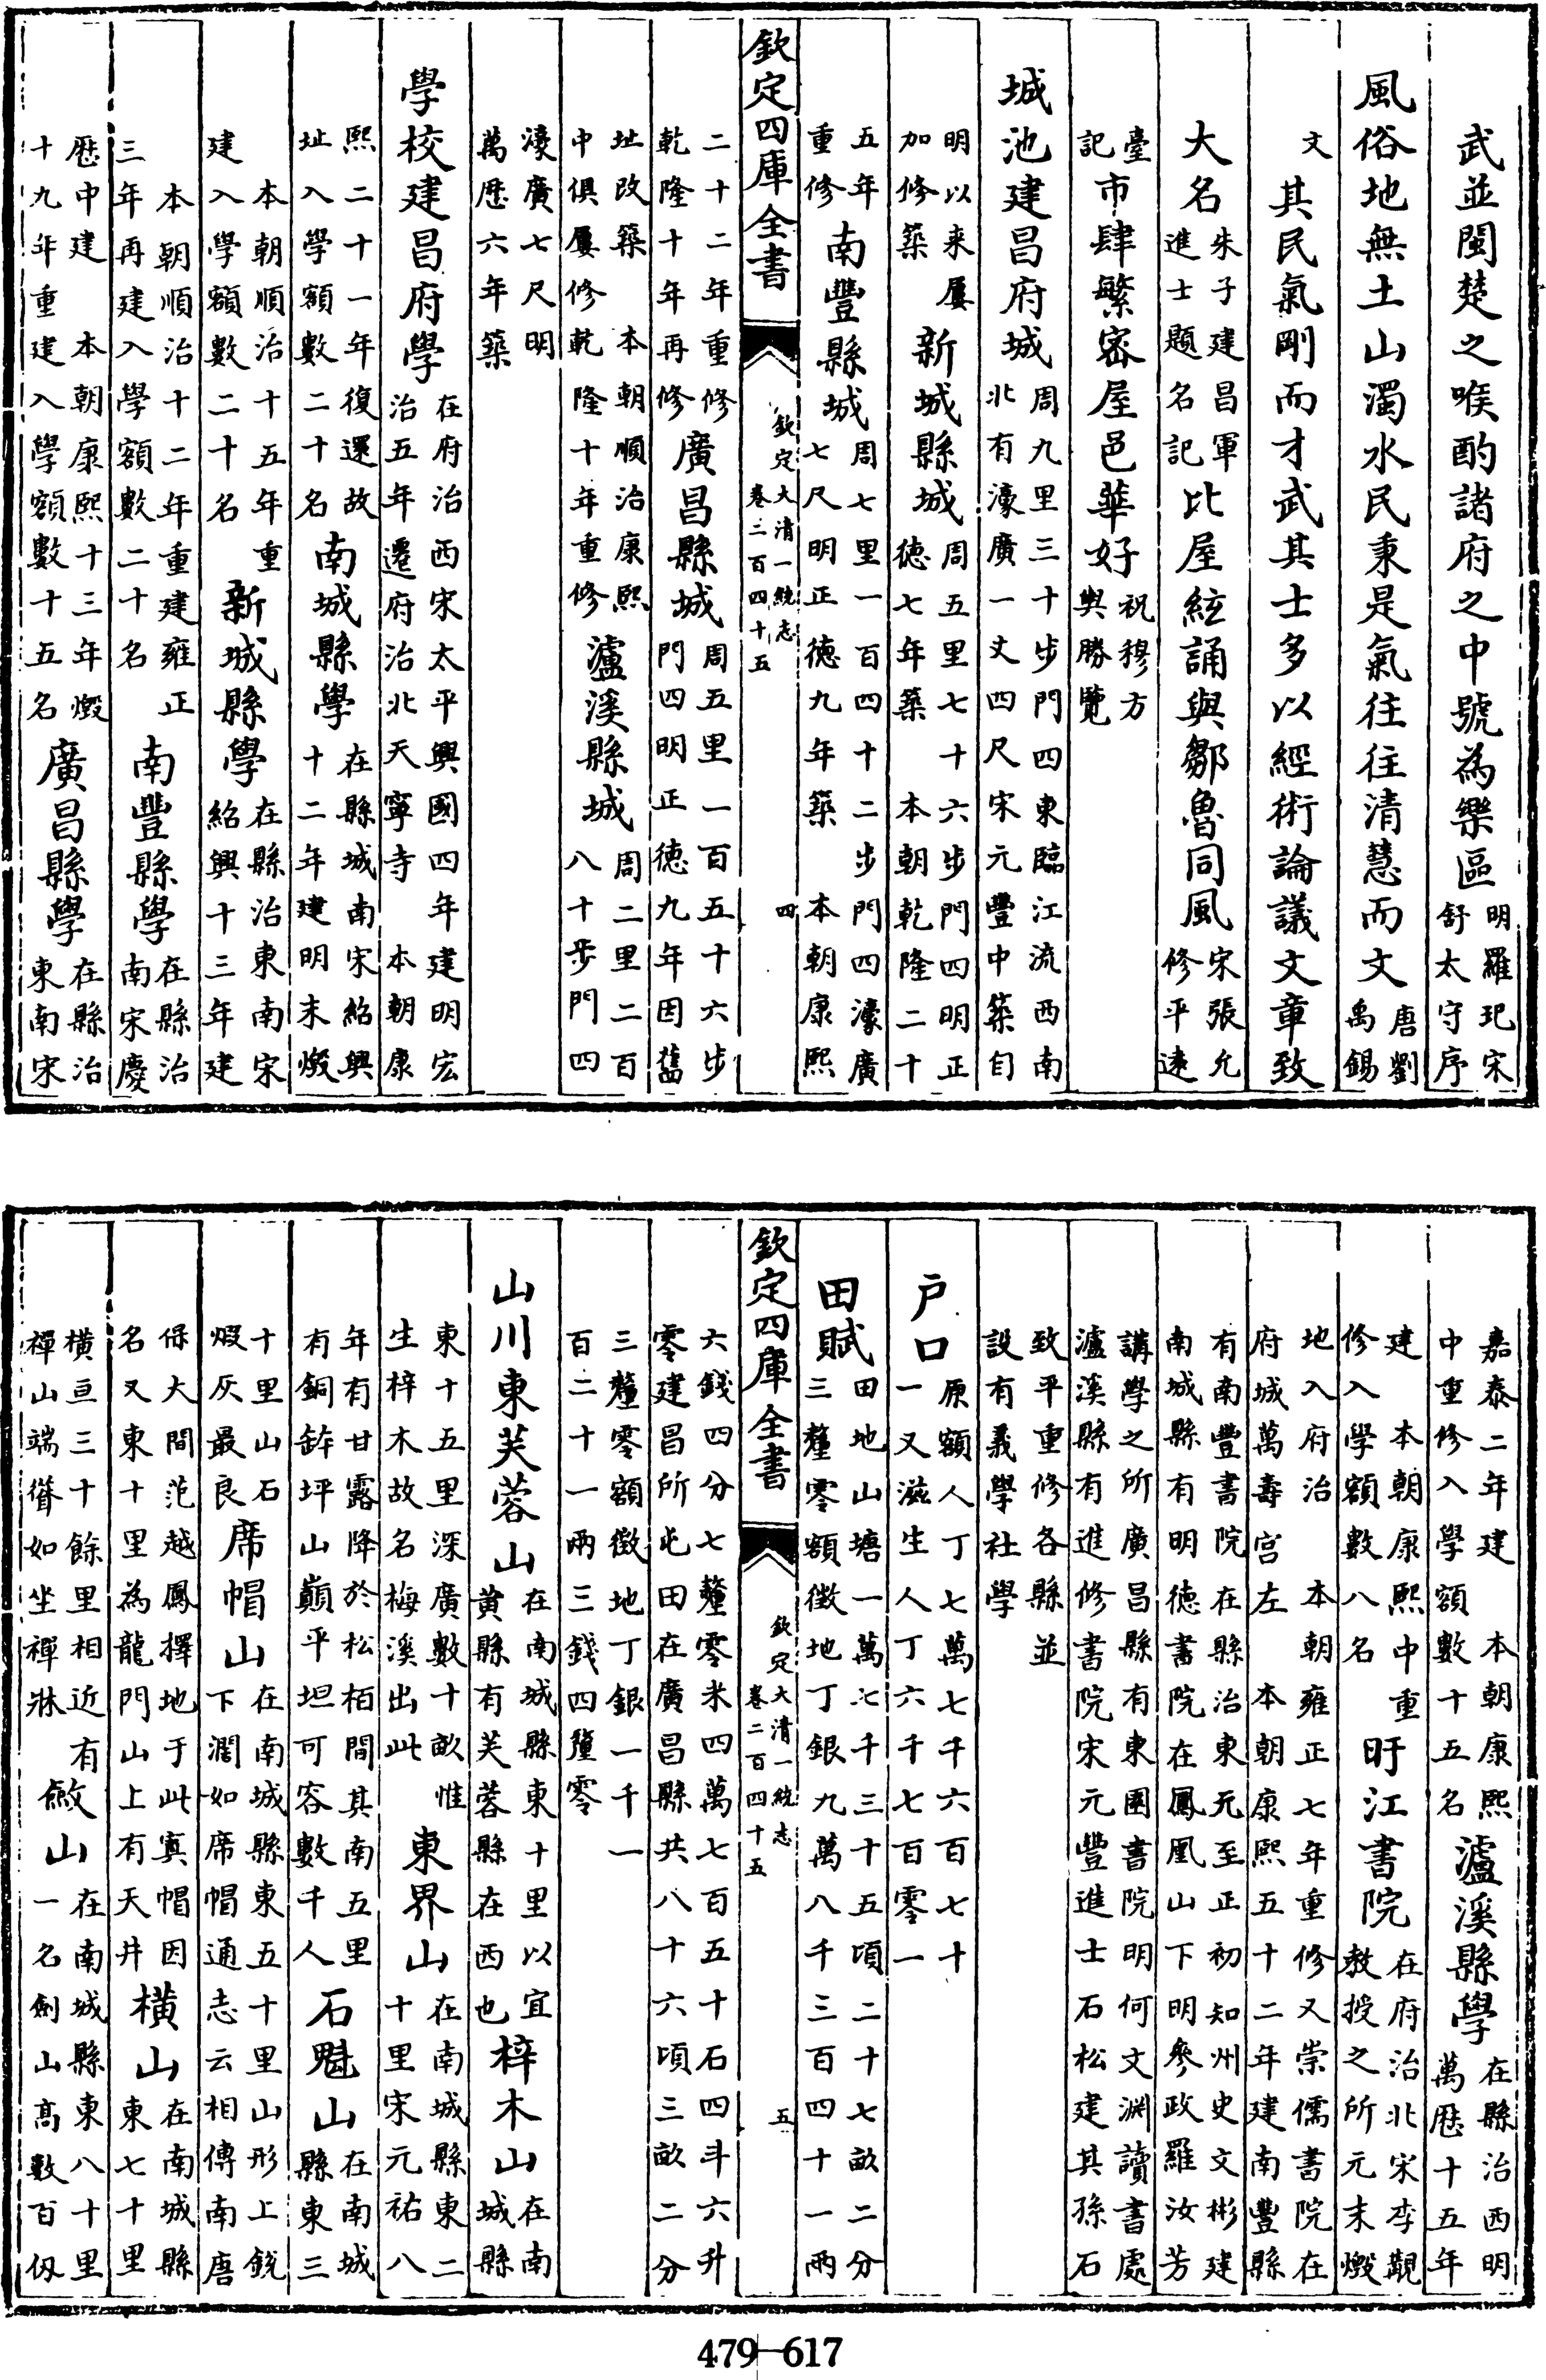 武並閩楚之喉酌諸府之中號為樂區明羅玘宋舒太守序
風俗地無土山濁水民秉是氣往往清慧而文唐劉禹錫
文其民氣剛而才武其士多以經術論議文章致
大名朱子建昌軍進士題名記比屋絃誦與鄒魯同風宋張允修平遠
臺記市肆繁密屋邑華好祝穆方輿勝覽
城池建昌府城周九里三十步門四東臨江流西南北有濠廣一丈四尺宋元豐中築自
明以来屢加修築新城縣城周五里七十六步門四明正徳七年築 本朝乾隆二十
五年重修南豐縣城周七里一百四十二步門四濠廣七尺明正徳九年築 本朝康熙
欽定四庫全書 欽定大清一統志 卷二百四十五 四
二十二年重修乾隆十年再修廣昌縣城周五里一百五十六步門四明正徳九年因舊
址改築 本朝順治康熙中俱屢修乾隆十年重修瀘溪縣城周二里二百八十步門四
濠廣七尺明萬歴六年築
學校建昌府學在府治西宋太平興國四年建明宏治五年遷府治北天寧寺 本朝康
熙二十一年復還故址入學額數二十名南城縣學在縣城南宋紹興十二年建明末燬
本朝順治十五年重建入學額數二十名新城縣學在縣治東南宋紹興十三年建
本朝順治十二年重建雍正三年再建入學額數二十名南豐縣學在縣治南宋慶
歴中建 本朝康熙十三年燬十九年重建入學額數十五名廣昌縣學在縣治東南宋
嘉泰二年建 本朝康熙中重修入學額數十五名瀘溪縣學在縣治西明萬歴十五年
建 本朝康熙中重修入學額數八名盱江書院在府治北宋李覯教授之所元末燬
地入府治 本朝雍正七年重修又崇儒書院在府城萬壽宫左 本朝康熙五十二年建南豐縣
有南豐書院在縣治東元至正初知州史文彬建南城縣有明徳書院在鳳凰山下明參政羅汝芳
講學之所廣昌縣有東園書院明何文淵讀書處瀘溪縣有進修書院宋元豐進士石松建其孫石
致平重修各縣並設有義學社學
户口原額人丁七萬七千六百七十一又滋生人丁六千七百零一
田賦田地山塘一萬七千三十五頃二十七畝二分三釐零額徴地丁銀九萬八千三百四十一兩
欽定四庫全書 欽定大清一統志 卷二百四十五 五
六錢四分七釐零米四萬七百五十石四斗六升零建昌所屯田在廣昌縣共八十六頃三畝二分
三釐零額徴地丁銀一千一百二十一兩三錢四釐零
山川東芙蓉山在南城縣東十里以宜黄縣有芙蓉縣在西也梓木山在南城縣
東十五里深廣數十畝惟生梓木故名梅溪出此東界山在南城縣東二十里宋元祐八
年有甘露降於松栢間其南五里有銅鉾坪山巔平坦可容數千人石魁山在南城縣東三
十里山石煅灰最良席帽山在南城縣東五十里山形上鋭下濶如席帽通志云相傳南唐
保大間范越鳳擇地于此寘帽因名又東十里為龍門山上有天井横山在南城縣東七十里
横亘三十餘里相近有禪山端聳如坐禪牀斂山在南城縣東八十里一名劍山髙數百仭
479-617